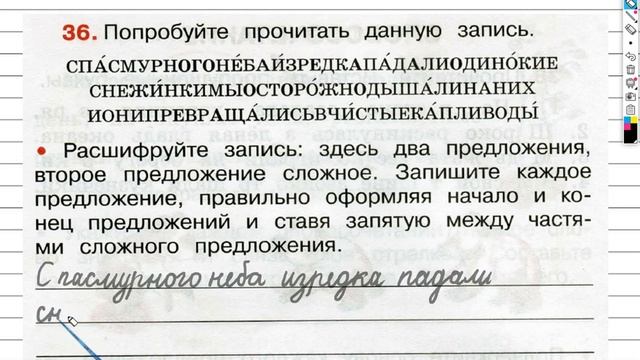 36. Попробуйте прочитать данную запись.
СПА́СМУРНОГОНЕ́БАИ́ЗРЕДКАПА́ДАЛИОДИНО́КИЕ
СНЕЖИ́НКИМЫОСТОРО́ЖНОДЫША́ЛИНАНИХ
ИОНИПРЕВРАЩА́ЛИСЬВЧИ́СТЫЕКА́ПЛИВОДЫ́
• Расшифруйте запись: здесь два предложения,
второе предложение сложное. Запишите каждое
предложение, правильно оформляя начало и ко-
нец предложений и ставя запятую между частя-
ми сложного предложения.
С пасмурного неба изредка падали
сн